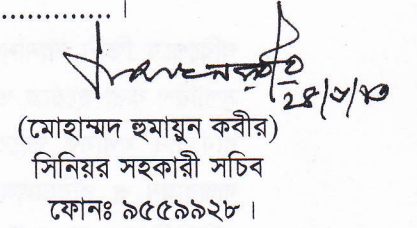 ....................।
২৪/৮/১০
(মোহাম্মদ হুমায়ুন কবীর)
সিনিয়র সহকারী সচিব
ফোনঃ ৯৫৫৯৯২৮ ।